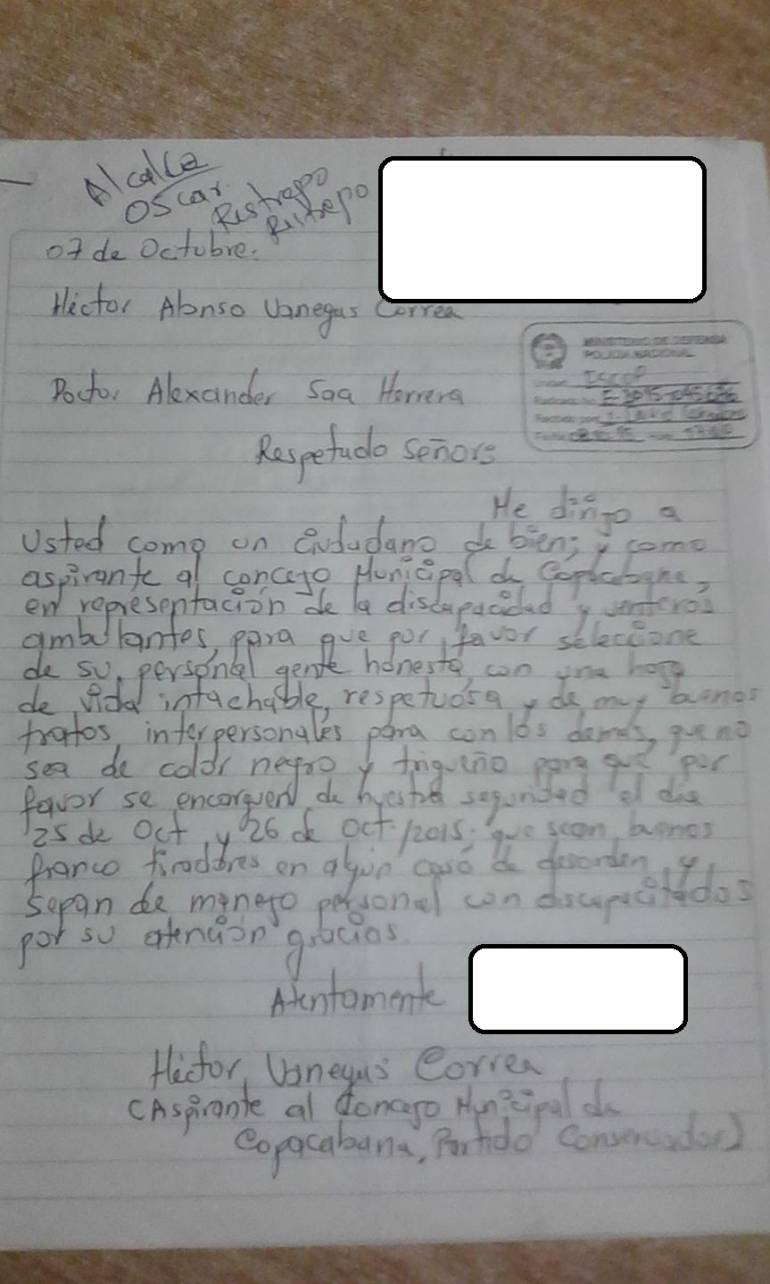 Alcalde
Oscar Restrepo
Restrepo
07 de Octubre.
Héctor Alonso Vanegas Correa
MINISTERIO DE DEFENSA
POLICIA NACIONAL
Doctor Alexander Saa Herrera
Respetado Señor:
Me dirijo a
Usted como un Ciudadano de bien; y como
aspirante al concejo Municipal de Copacabana,
en representación de la discapacidad y venteros
ambulantes, para que por favor seleccione
de su personal gente honesta, con una hoja
de vida intachable, respetuosa y de muy buenos
tratos interpersonales para con los demás, que no
sea de color negro y trigueño para que por
favor se encarguen de nuestra seguridad el día
25 de Oct y 26 de Oct/2015. que sean buenos
franco tiradores en algún caso de desorden y
sepan de manejo personal con discapacitados
por su atención gracias.
Atentamente
Héctor Vanegas Correa
(Aspirante al Concejo Municipal de
Copacabana, Partido Conservador)